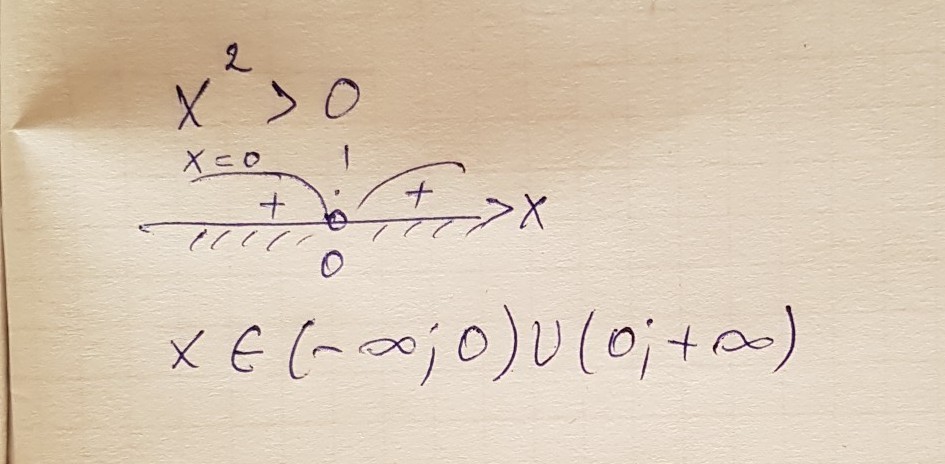 x² > 0
x = 0 !
+ + x
0
x ∈ (-∞; 0) ∪ (0; +∞)